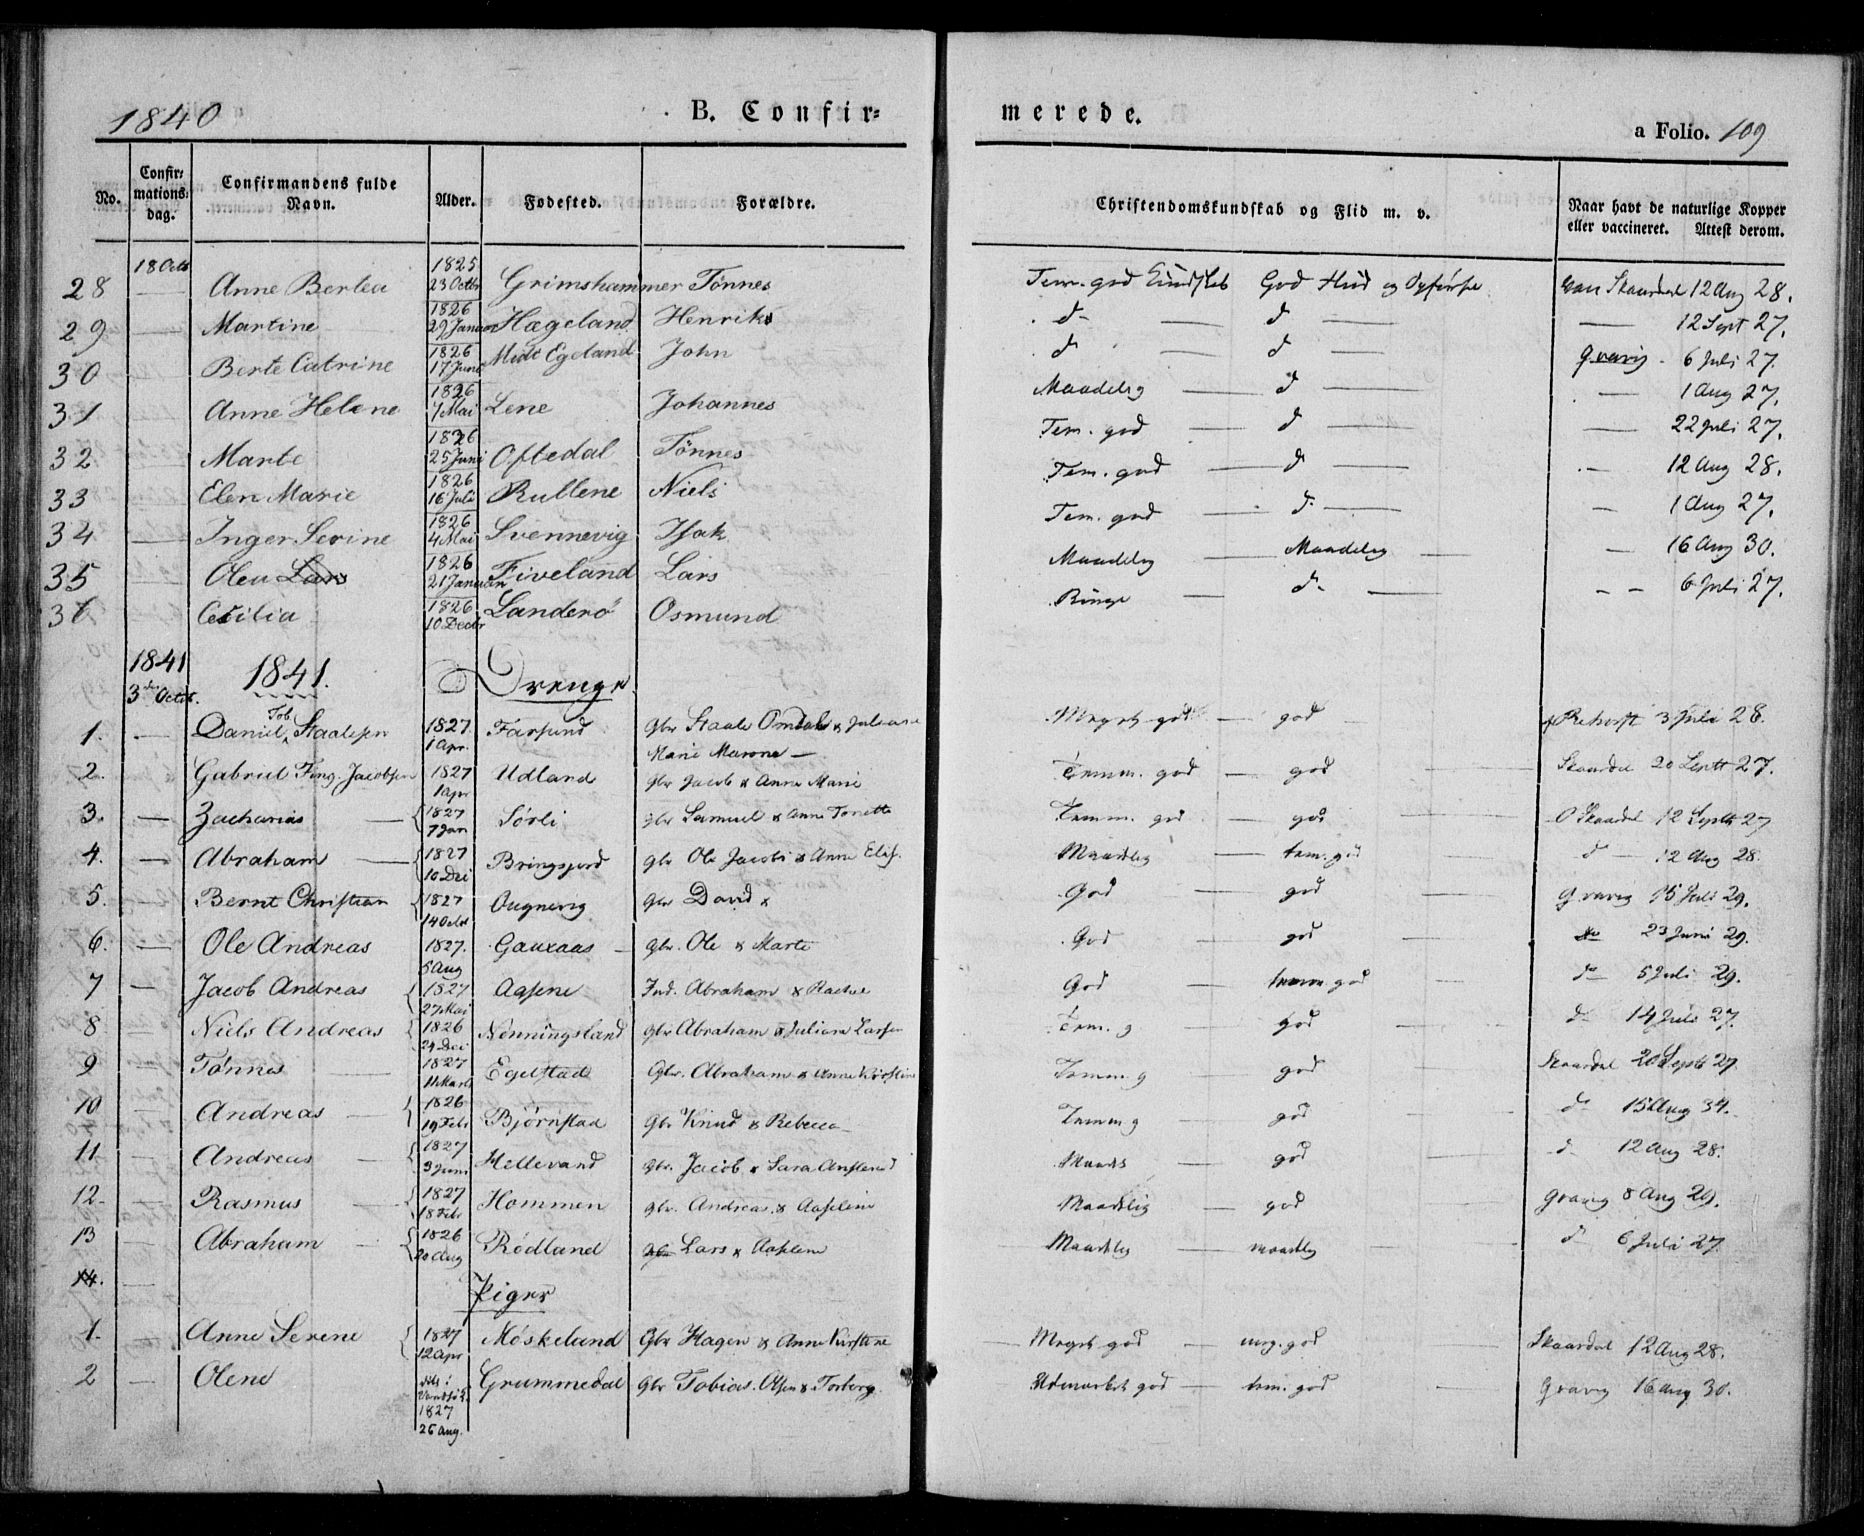 1840 B. Confir= merede. a Folio. 109
No. Confir= mations= dag. Confirmandens fulde Navn. Alder. Fødested. Forældre. Christendomskundskab og Flid m. v. Naar havt de naturlige Kopper eller vaccineret. Attest derom.
28 18 Octb Anne Bertea 1825 23 Octbr Grimshammer Tønnes Tem. god Kundskab God Flid og Opførsel van Skaardal 12 Aug 28.
29 — Martine 1826 29 Januar Hægeland Henrik d — d — — 12 Sept 27.
30 — Berte Catrine 1826 17 Juni Midt Egeland John d — d — Gravig 6 Juli 27.
31 — Anne Helene 1826 7 Mai Lene Johannes Maadelig — d — — 1 Aug 27.
32 — Marte 1826 25 Juni Oftedal Tønnes Tem. god — d — — 22 Juli 27.
33 — Elen Marie 1826 16 Juli Rullene Niels Tem. god — d — — 12 Aug 28.
34 — Inger Serine 1826 4 Mai Svennevig Isak Tem. god — d — — 1 Aug 27.
35 — Olea Lars 1826 21 Januar Fiveland Lars Maadelig — Maadelig — — 16 Aug 30.
36 Cecilia 1826 10 Decbr Landerö Osmund Ringe d — — — 6 Juli 27.
1841 3die Octob. 1841. Drenge
1. — Daniel Tob. Staalesen 1827 1 Apr. Farsund Gbr Staale Omdal & Juliane Marie Marone — Meget god — god — Rehorst 3 Juli 28.
2. — Gabriel Jacobsen 1827 1 Apr Udland Gbr Jacob & Anne Marie Temm. god — god Skaardal 20 Septb 27.
3. — Zacharias — 1827 7 Jan Sørli Gbr Samuel & Anne Torette Temm. god — god Skaardal 12 Septb 27
4. — Abraham — 1827 10 Dei Bringsjord Gbr Ole Jacobs & Anne Elis. Maadelig — tem. god d — 12 Aug 28.
5. — Bernt Christian 1827 14 Octbr Gbr David & God — god — Gravig 15 Juli 29.
6. — Ole Andreas 1827. 5 Aug Gauxaas — Gbr. Ole & Marte God — god — do 23 Juni 29.
7 — Jacob Andreas 1827 27 Mai Aasene Ind. Abraham & Rachel God — temm. god — d — 5 Juli 29.
8 Niels Andreas 1826 29 Dei Nenningsland Gbr Abraham & Juliane Larsen Tem. g god — d — 14 Juli 27.
9 Tønnes — 1827 11 Marts Egelstad Gbr. Abraham & Anne Kirstine Temm g god Skaardal 20 Septb 27
10 Andreas — 1826 19 Febr Bjørnstad Gbr Knud & Rebecca Temm g god d 15 Aug 34.
11 Andreas — 1827 3 Juni Hellevand Gbr. Jacob & Sara Maadl — god d 12 Aug 28.
12 Rasmus — 1827 18 Febr Hommen Gbr. Andreas & Aaselene Maadelig — god Gravig 8 Aug 29.
13 Abraham — 1826 20 Aug Rødland Lars & Aaslene Maadelig — maadelig d 6 Juli 27
14. — Piger
1. — Anne Serene 1827 12 Apr Møskeland Gbr Hagen & Anne Kirstine — Meget god — meg. god Skaardal 12 Aug 28.
2 — Olene 1827 26 Aug. Grummedal Gbr Tobias Olsen & Torborg. Udmærket god — tem. god — Gravig 16 Aug 30.